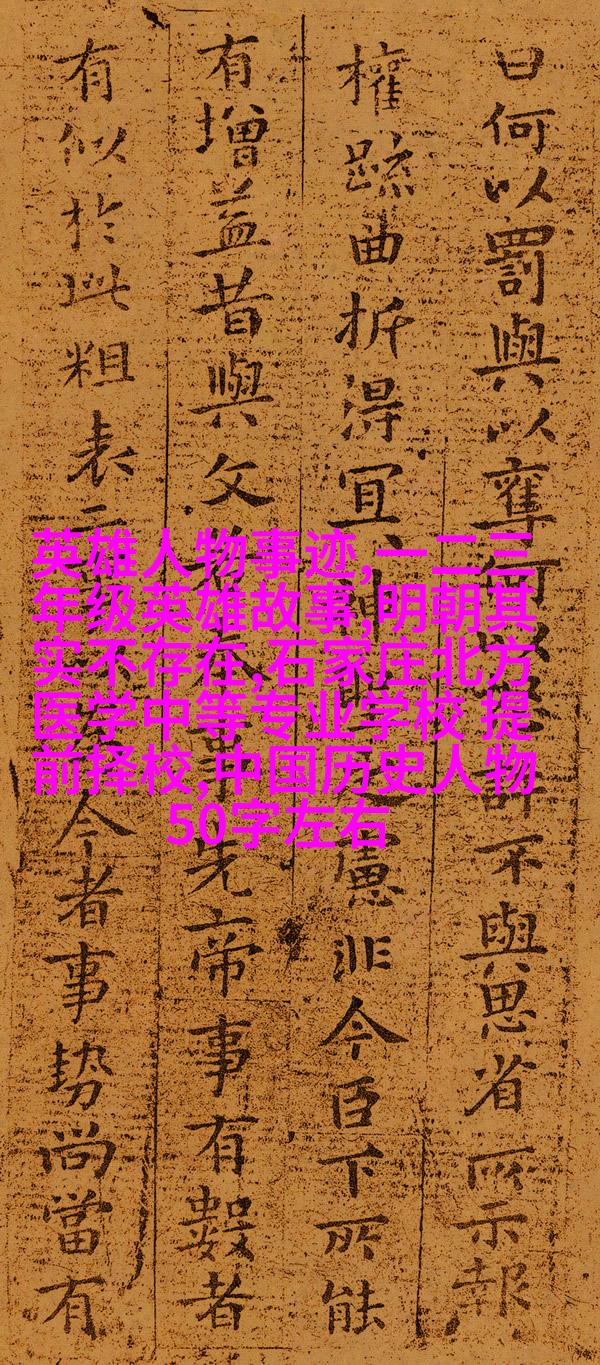 英雄人物事迹,一二三
年级英雄故事,明朝其
实不存在,石家庄北方
医学中等专业学校 提
前择校,中国历史人物
50字左右
日何以罰與以奪何以怒許不與思省所示報
權疏曲折得宜神慮非今臣下所能
有增益昔與文奉事先帝事有數者
有似於此粗表二今者事勢尚當有